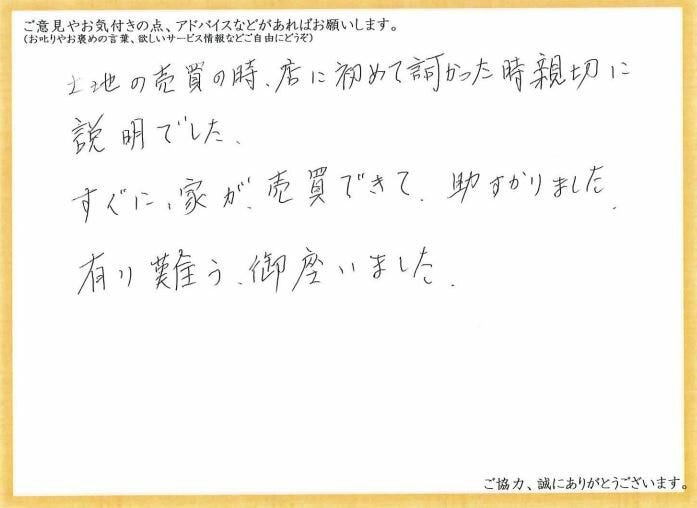 ご意見やお気付きの点、アドバイスなどがあればお願いします。
(お叱りやお褒めの言葉、欲しいサービス情報などご自由にどうぞ)
土地の売買の時、店に初めて訶かった時親切に
説明でした、
すぐに、家が、売買できて、助すかりました、
有り難う、御座いました、
ご協力、誠にありがとうございます。